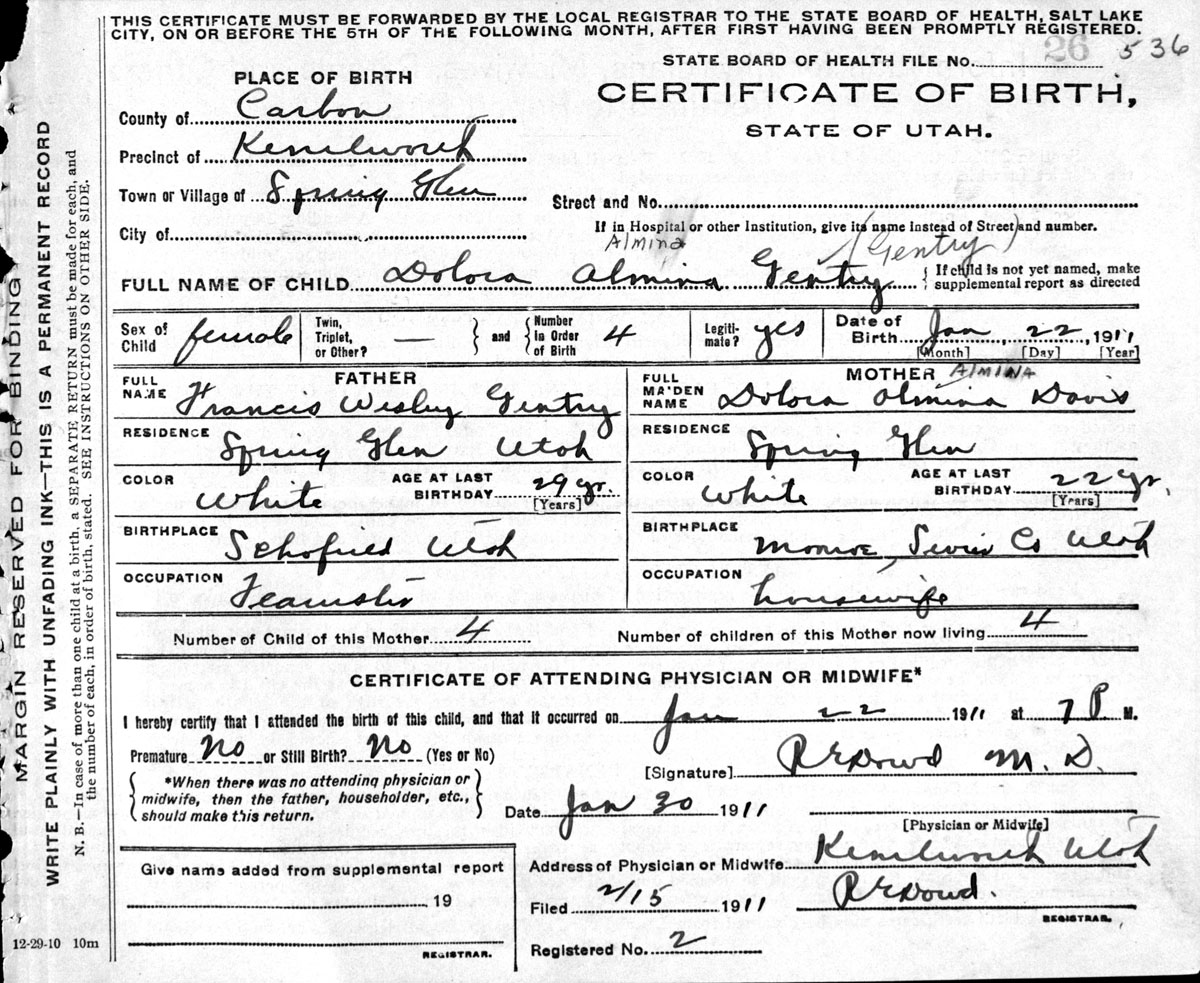 THIS CERTIFICATE MUST BE FORWARDED BY THE LOCAL REGISTRAR TO THE STATE BOARD OF HEALTH, SALT LAKE
CITY, ON OR BEFORE THE 5TH OF THE FOLLOWING MONTH, AFTER FIRST HAVING BEEN PROMPTLY REGISTERED.
STATE BOARD OF HEALTH FILE No. 26 536
PLACE OF BIRTH
CERTIFICATE OF BIRTH,
STATE OF UTAH.
County of Carbon
Precinct of Kenilworth
Town or Village of Spring Glen
Street and No.
City of
If in Hospital or other Institution, give its name instead of Street and number.
Almina (Gentry)
FULL NAME OF CHILD Dolora Almina Gentry { If child is not yet named, make
supplemental report as directed
Sex of Child female
Twin, Triplet, or Other? — } and { Number in Order of Birth 4
Legitimate? yes
Date of Birth Jan 22, 1911
[Month] [Day] [Year]
FATHER
FULL NAME Francis Wesley Gentry
RESIDENCE Spring Glen Utah
COLOR White AGE AT LAST BIRTHDAY 29 yr. [Years]
BIRTHPLACE Schofield Utah
OCCUPATION Teamster
MOTHER ALMINA
FULL MAIDEN NAME Dolora Almina Davis
RESIDENCE Spring Glen
COLOR White AGE AT LAST BIRTHDAY 22 yr. [Years]
BIRTHPLACE Monroe, Sevier Co Utah
OCCUPATION housewife
Number of Child of this Mother 4 Number of children of this Mother now living 4
CERTIFICATE OF ATTENDING PHYSICIAN OR MIDWIFE*
I hereby certify that I attended the birth of this child, and that it occurred on Jan 22 1911 at 7 P M.
Premature No or Still Birth? No (Yes or No)
[Signature] R E Dowd M. D.
{ *When there was no attending physician or
midwife, then the father, householder, etc.,
should make this return. }
Date Jan 30 1911
[Physician or Midwife]
Address of Physician or Midwife Kenilworth Utah
Filed 2/15 1911 R E Dowd.
REGISTRAR.
Registered No. 2
Give name added from supplemental report
19
REGISTRAR.
12-29-10 10m
MARGIN RESERVED FOR BINDING
WRITE PLAINLY WITH UNFADING INK—THIS IS A PERMANENT RECORD
N. B.—In case of more than one child at a birth, a SEPARATE RETURN must be made for each, and
the number of each, in order of birth, stated. SEE INSTRUCTIONS ON OTHER SIDE.